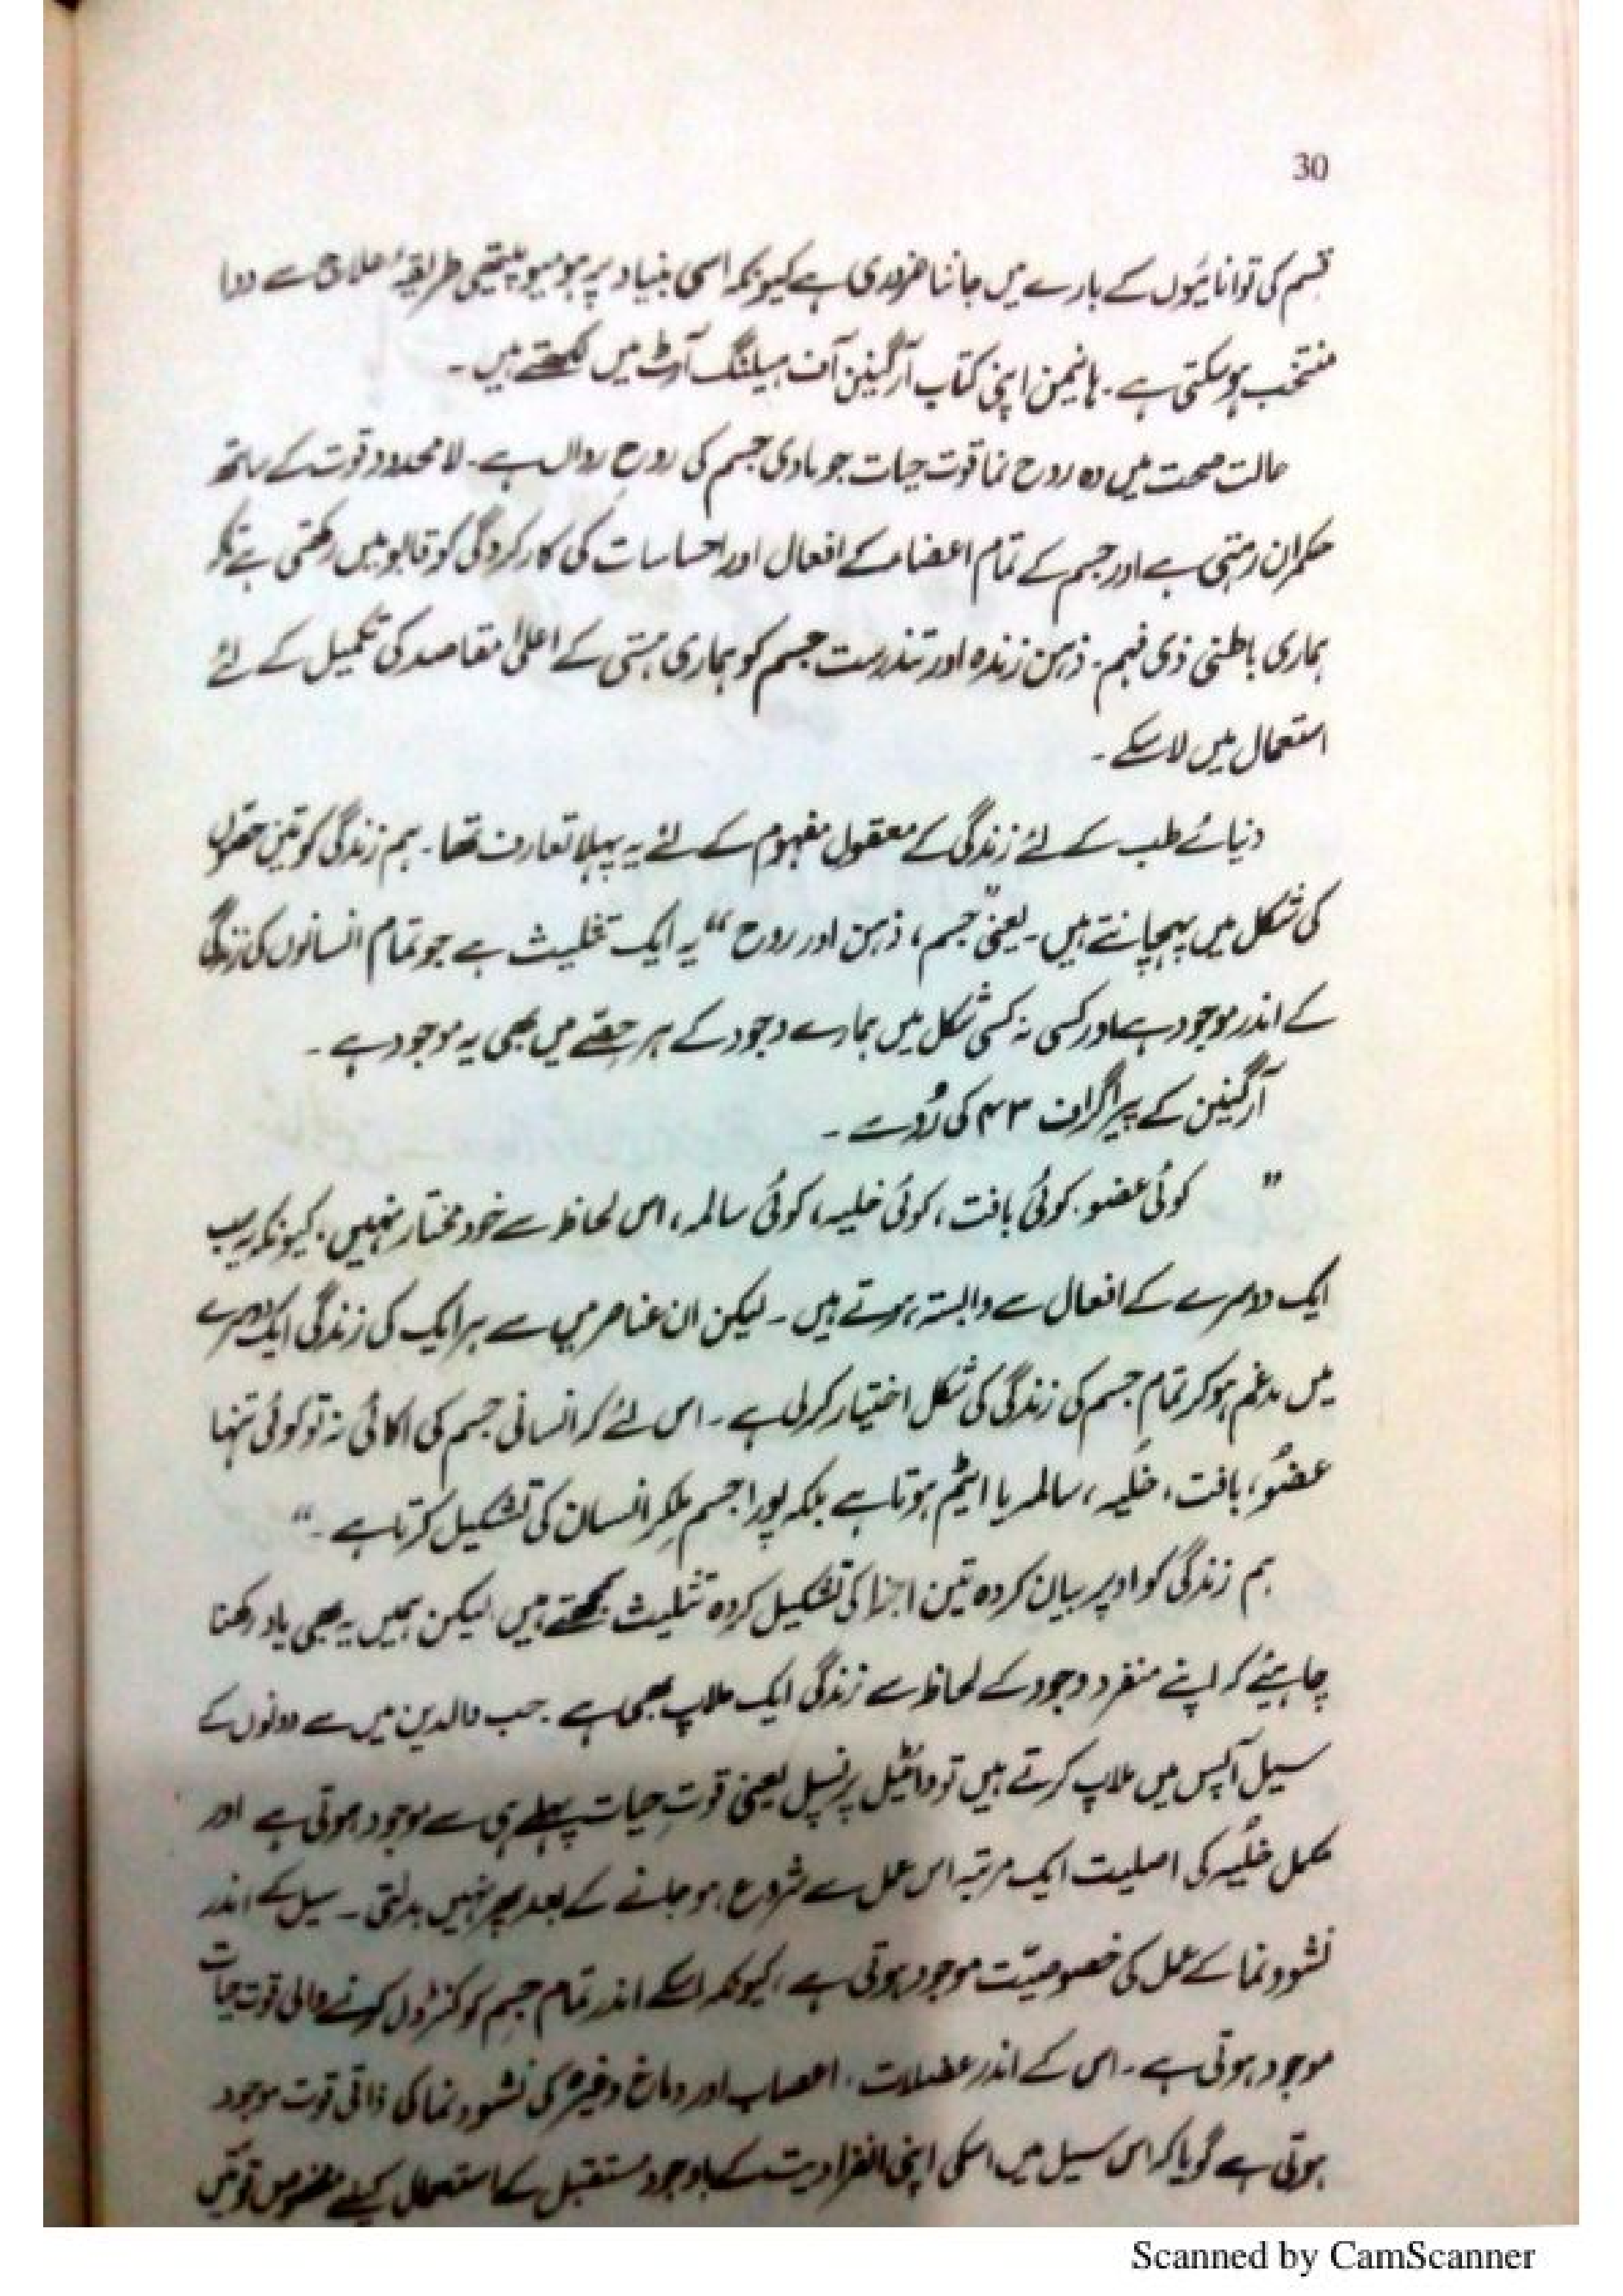 30
قسم کی توانائیوں کے بارے میں جاننا ضروری ہے کیونکہ اسی بنیاد پر ہومیوپیتھی طریقۂ علاج سے دوا
منتخب ہوسکتی ہے۔ ہانیمن اپنی کتاب آرگینن آف ہیلنگ آرٹ میں لکھتے ہیں۔
حالت صحت میں وہ روح نما قوت حیات جو مادی جسم کی روحِ رواں ہے۔ لامحدود قوت کے ساتھ
حکمران رہتی ہے اور جسم کے تمام اعضاء کے افعال اور احساسات کی کارکردگی کو قابو میں رکھتی ہے تاکہ
ہماری باطنی ذی فہم۔ ذہن زندہ اور تندرست جسم کو ہماری ہستی کے اعلیٰ مقاصد کی تکمیل کے لئے
استعمال میں لاسکے۔
دنیائے طب کے لئے زندگی کے معقول مفہوم کے لئے یہ پہلا تعارف تھا۔ ہم زندگی کو تین حصّوں
کی شکل میں پہچانتے ہیں۔ یعنی "جسم، ذہن اور روح" یہ ایک تخلیث ہے جو تمام انسانوں کی زندگی
کے اندر موجود ہے اور کسی نہ کسی شکل میں ہمارے وجود کے ہر حصّے میں بھی یہ موجود ہے۔
آرگینن کے پیراگراف ۴۳ کی رُو سے۔
" کوئی عضو، کوئی بافت، کوئی خلیہ، کوئی سالمہ، اس لحاظ سے خود مختار نہیں، کیونکہ یہ سب
ایک دوسرے کے افعال سے وابستہ ہوتے ہیں۔ لیکن ان عناصر میں سے ہر ایک کی زندگی ایک دوسرے
میں مدغم ہوکر تمام جسم کی زندگی کی شکل اختیار کرلی ہے۔ اس لئے کہ انسانی جسم کی اکائی نہ تو کوئی تنہا
عضو، بافت، خلیہ، سالمہ یا ایٹم ہوتا ہے بلکہ پورا جسم ملکر انسان کی تشکیل کرتا ہے۔"
ہم زندگی کو اوپر بیان کردہ تین اجزا کی تشکیل کردہ تثلیث سمجھتے ہیں لیکن ہمیں یہ بھی یاد رکھنا
چاہیئے کہ اپنے منفرد وجود کے لحاظ سے زندگی ایک ملاپ بھی ہے۔ جب والدین میں سے دونوں کے
سیل آپس میں ملاپ کرتے ہیں تو وائٹل پرنسپل یعنی قوتِ حیات پہلے ہی سے موجود ہوتی ہے اور
مکمل خلیہ کی اصلیت ایک مرتبہ اس عمل سے شروع ہوجانے کے بعد پھر نہیں بدلتی۔ سیل کے اندر
نشوونما کے عمل کی خصوصیّت موجود ہوتی ہے، کیونکہ اسکے اندر تمام جسم کو کنٹرول کرنے والی قوت حیات
موجود ہوتی ہے۔ اس کے اندر عضلات، اعصاب اور دماغ وغیرہ کی نشوونما کی ذاتی قوت موجود
ہوتی ہے گویا کہ اس سیل میں اسکی اپنی انفرادیت کے باوجود مستقبل کے استعمال کیلئے مخصوص قوتیں
Scanned by CamScanner